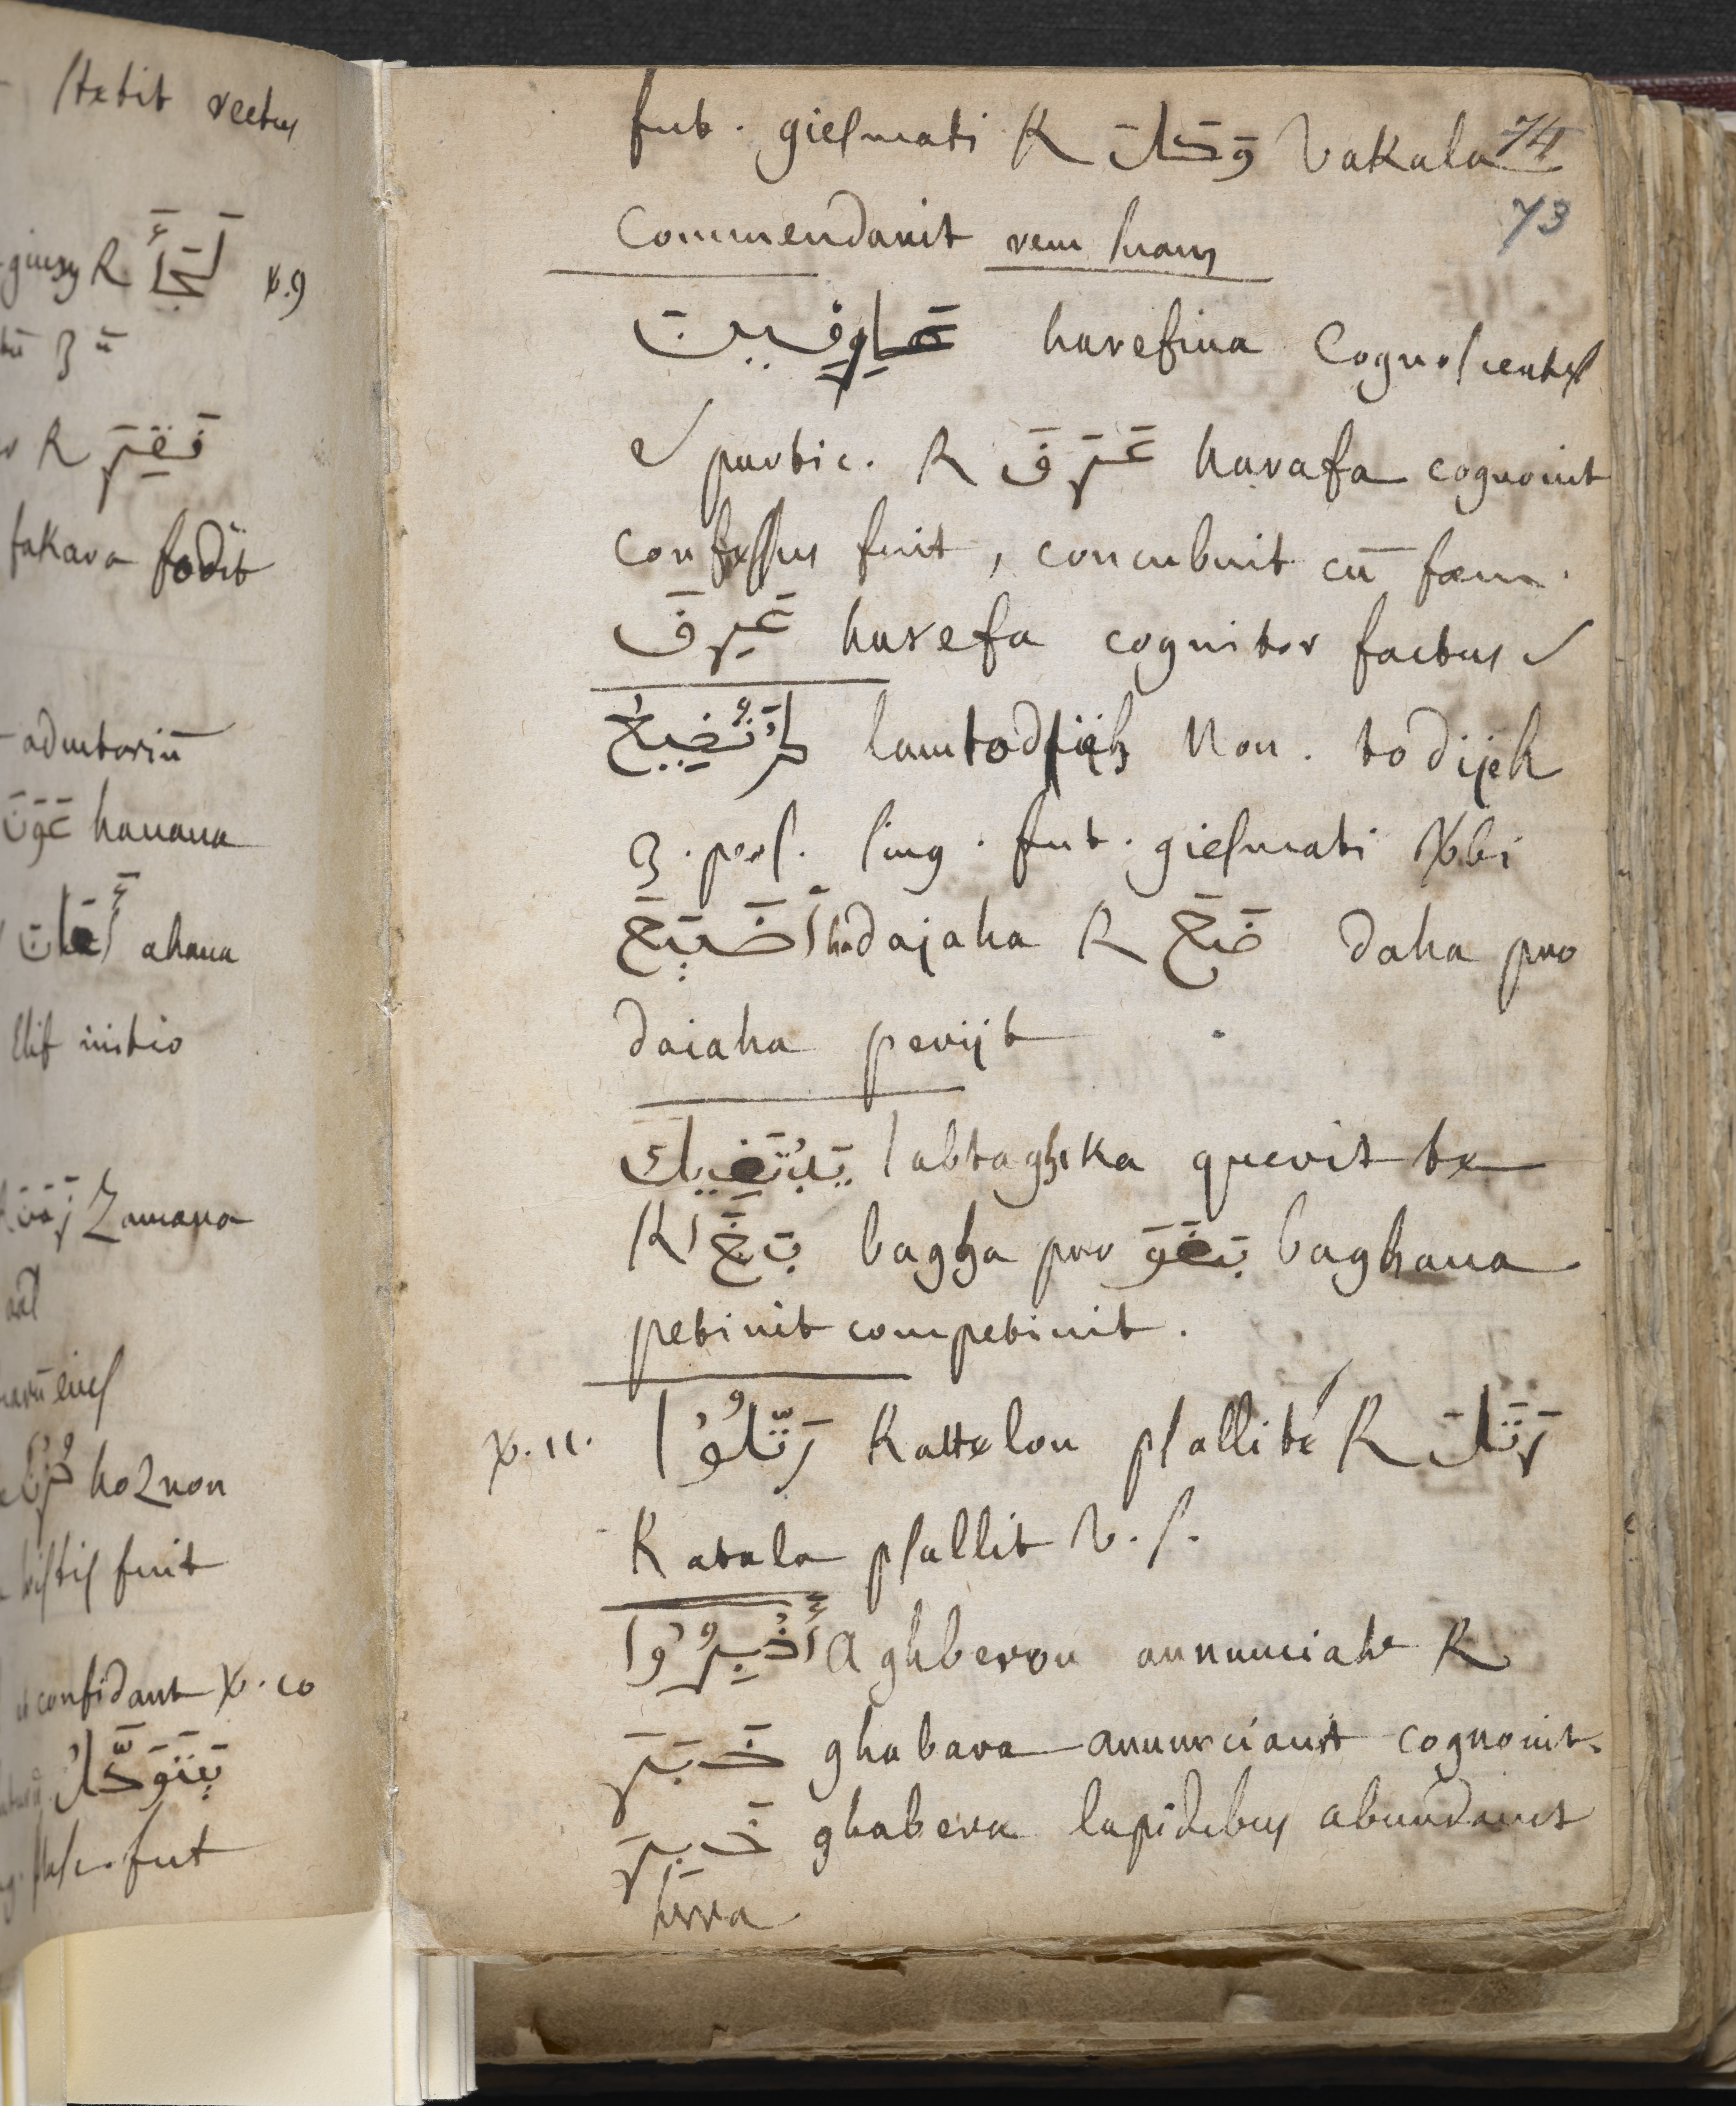 stetit rectus
R لَجَأَ v.9
R فَقِرَ
fakara fodit
adiutoriū
عَوَنَ hauana
أَعَانَ ahana
Elif initio
زَمَنَ Zamana
حُزْنٌ hoznon
tristis fuit
confidant v. 10
يَتَوَكَّلُ
fut
74
73
fut. giesmati R وَكَلَ vakala
commendauit rem suam
عَارِفِينَ harefina cognoscentes
partic. R عَرَفَ harafa cognouit
confessus fuit, concubuit cū fœm.
عَرِفَ harefa cognitor factus
لَمْ تُضِيعْ lamtodijeh Non. todijeh
3. pers. sing. fut. giesmati
أَضَيَعَ hadajaha R ضَعَ daha pro
daiaha perijt
يَبْتَغِيكَ iabtaghika querit te
R بَغَا bagha pro بَغَوَ baghaua
petiuit competiuit.
v. 11. رَتِّلُوْا Rattelou psallite R رَتَلَ
Ratala psallit v. s.
أَخْبِرُوْا Aghberou annunciate R
خَبَرَ ghabara annunciauit cognouit.
خَبِرَ ghabera lapidibus abundauit
terra